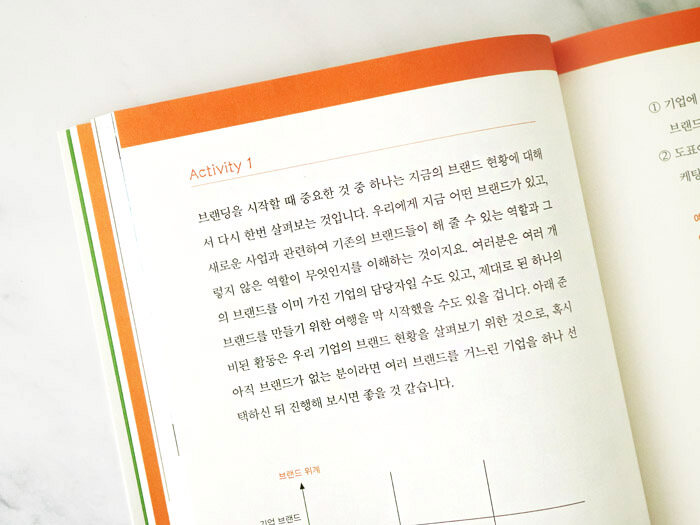 Activity 1
브랜딩을 시작할 때 중요한 것 중 하나는 지금의 브랜드 현황에 대해
서 다시 한번 살펴보는 것입니다. 우리에게 지금 어떤 브랜드가 있고,
새로운 사업과 관련하여 기존의 브랜드들이 해 줄 수 있는 역할과 그
렇지 않은 역할이 무엇인지를 이해하는 것이지요. 여러분은 여러 개
의 브랜드를 이미 가진 기업의 담당자일 수도 있고, 제대로 된 하나의
브랜드를 만들기 위한 여행을 막 시작했을 수도 있을 겁니다. 아래 준
비된 활동은 우리 기업의 브랜드 현황을 살펴보기 위한 것으로, 혹시
아직 브랜드가 없는 분이라면 여러 브랜드를 거느린 기업을 하나 선
택하신 뒤 진행해 보시면 좋을 것 같습니다.
브랜드 위계
기업 브랜드
① 기업에
브랜드
② 도표
케팅